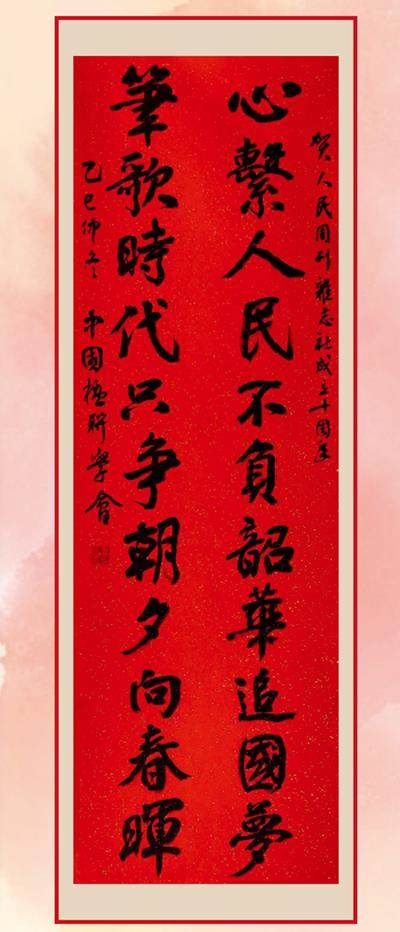 賀人民周刊雜志社成立十周年
心繫人民不負韶華追國夢
筆歌時代只争朝夕向春暉
乙巳仲冬 中國楹聯學會